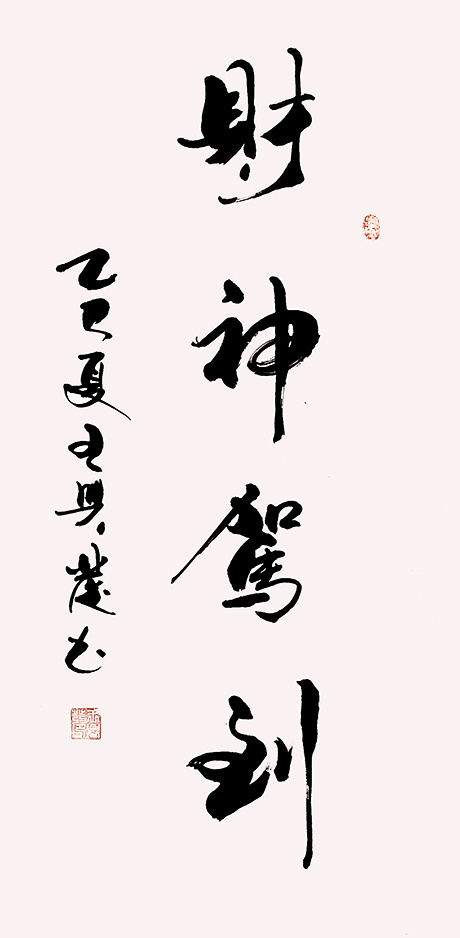 財神駕到
乙巳夏王興书